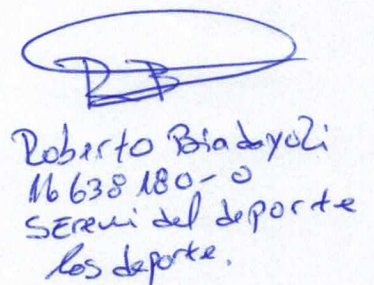 RB
Roberto Biadayoli
16 638 180-0
SEremi del deporte
los deporte.